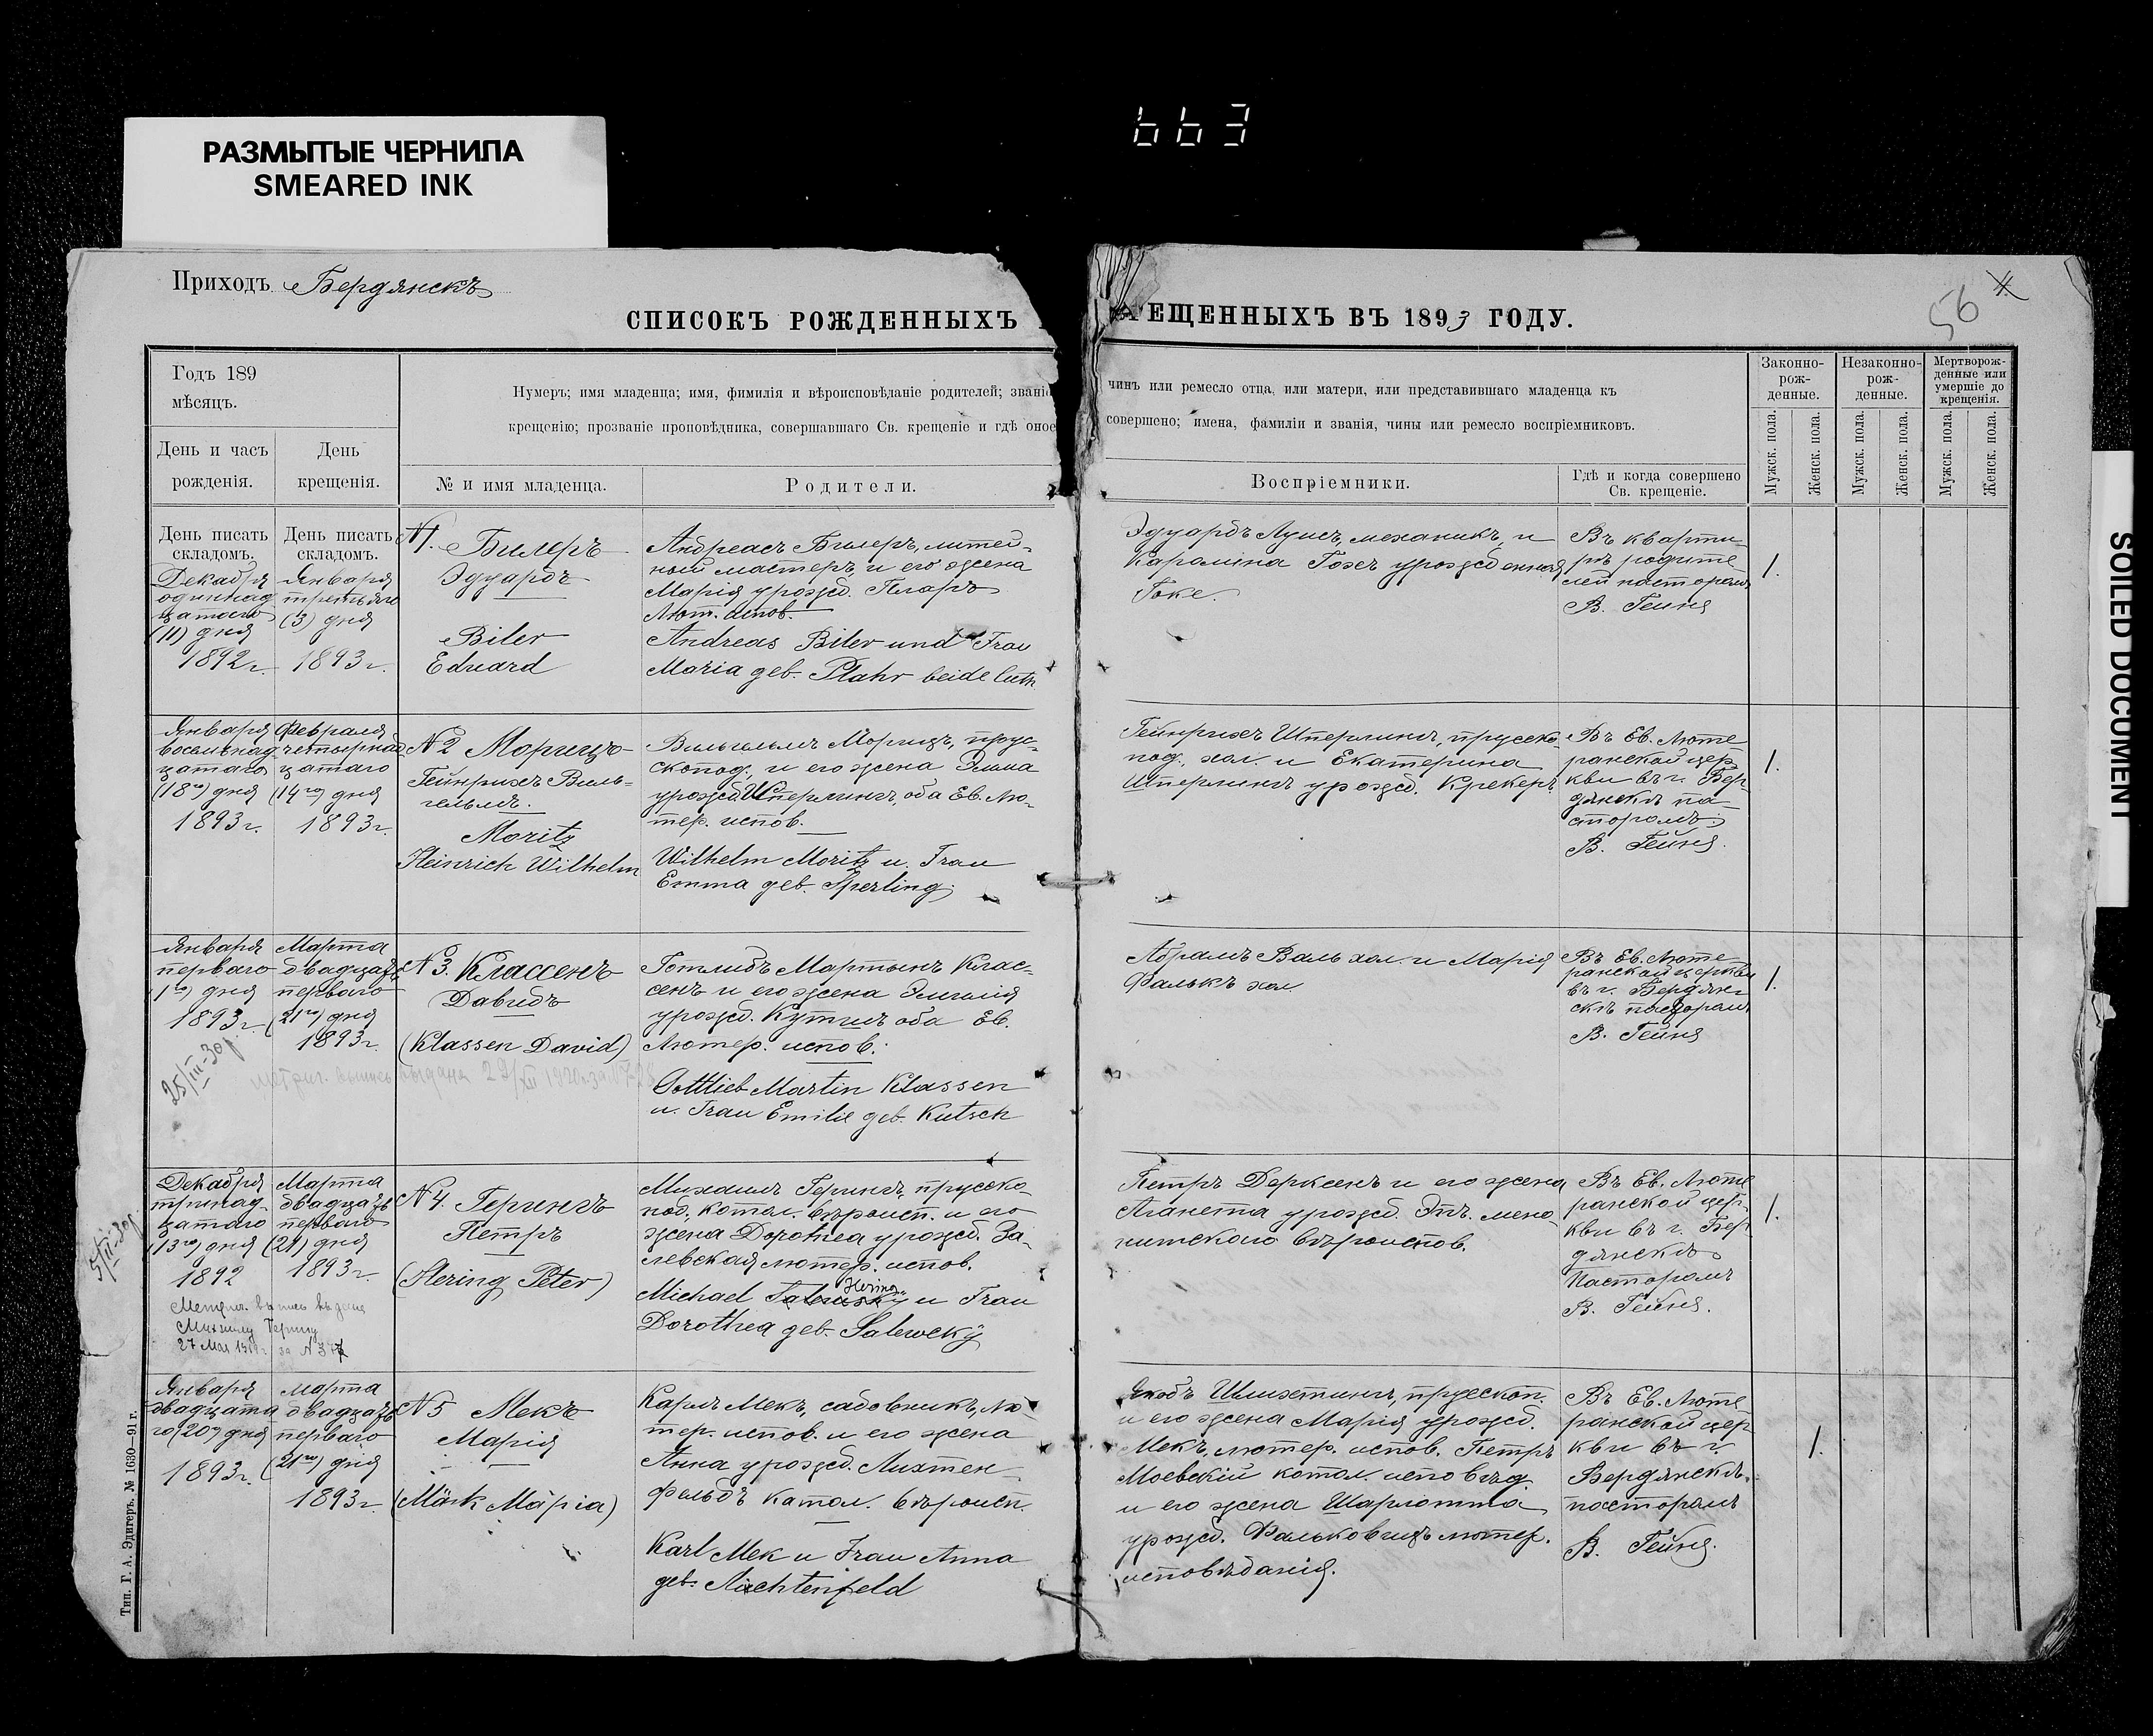 663
РАЗМЫТЫЕ ЧЕРНИЛА
SMEARED INK
SOILED DOCUMENT
Приходъ Бердянскъ
56
СПИСОКЪ РОЖДЕННЫХЪ
РЕЩЕННЫХЪ ВЪ 1893 ГОДУ.
Годъ 189
мѣсяцъ.
День и часъ
рожденія.
День
крещенія.
Нумеръ; имя младенца; имя, фимилія и вѣроисповѣданіе родителей; званіе
чинъ или ремесло отца, или матери, или представившаго младенца къ
крещенію; прозваніе проповѣдника, совершавшаго Св. крещеніе и гдѣ оное
совершено; имена, фамиліи и званія, чины или ремесло воспріемниковъ.
№ и имя младенца.
Родители.
Воспріемники.
Гдѣ и когда совершено
Св. крещеніе.
Законно-
рож-
денные.
Незаконно-
рож-
денные.
Мертворож-
денные или
умершіе до
крещенія.
Мужск. пола.
Женск. пола.
Мужск. пола.
Женск. пола.
Мужск. пола.
Женск. пола.
День писать
складомъ.
Декабря
одиннад
цатаго
(11) дня
1892 г.
День писать
складомъ.
Января
третьяго
(3) дня
1893 г.
N 1. Билеръ
Эдуардъ
Biler
Eduard
Андреасъ Билеръ, литей-
ный мастеръ и его жена
Марія урожд. Пларъ
Лют. испов.
Andreas Biler und Frau
Maria geb. Plahr beide luth
Эдуардъ Луис, механикъ, и
Каролина Гоке урожденная
Гоке.
Въ кварти-
рѣ родите
лей пасторомъ
В. Гейне
1.
Января
восемнад
цатаго
(18го) дня
1893 г.
Февраля
четырнад
цатаго
(14го) дня
1893 г.
N 2 Морицъ
Гейнрихъ Виль-
гельмъ.
Moritz
Heinrich Wilhelm
Вильгельмъ Морицъ, прус-
скопод., и его жена Эмма
урожд. Шперлингъ, оба Ев. Лю-
тер. испов.
Wilhelm Moritz u. Frau
Emma geb. Sperling
Гейнрихъ Шперлингъ, прусско-
под. хол. и Екатерина
Шперлингъ урожд. Крекеръ
Въ Ев. Люте
ранской цер
кви въ г. Бер
дянскѣ па-
сторомъ
В. Гейне.
1.
Января
перваго
(1го) дня
1893 г.
Марта
двадцать
перваго
(21го) дня
1893 г.
N 3. Классенъ
Давидъ
(Klassen David)
Готлибъ Мартынъ Клас-
сенъ и его жена Эмилія
урожд. Кутшъ оба Ев.
Лютер. испов.
Gottlieb Martin Klassen
u. Frau Emilie geb. Kutsch
Абрамъ Валь хол. и Марія
Фалькъ хол.
Въ Ев. Люте
ранской церкви
въ г. Бердян-
скѣ пасторомъ
В. Гейне
1.
25/III-30г.
Декабря
тринад
цатаго
(13го) дня
1892
Марта
двадцать
перваго
(21) дня
1893 г.
N 4. Герингъ
Петръ
(Hering Peter)
Михаилъ Герингъ, прусско-
под. катол. вѣроисп. и его
жена Доротеа урожд. За-
левская лютер. испов.
Hering
Michael Salewsky u Frau
Dorothea geb. Salewcky
Петръ Дерксенъ и его жена
Аганета урожд. Эпъ. мено-
нитскаго вѣроиспов.
Въ Ев. Люте
ранской цер-
кви въ г. Бер
дянскѣ
Пасторомъ
В. Гейне.
1.
Метрич. выпись выдана
Михаилу Герингу
27 Мая
Января
двадцата
го (20го) дня
1893 г.
Марта
двадцать
перваго
(21го) дня
1893 г.
N 5 Мекъ
Марія
(Märk Maria)
Карлъ Мекъ, садовникъ, Лю
тер. испов. и его жена
Анна урожд. Лихтен
фельдъ катол. вѣроисп.
Karl Mek u Frau Anna
geb. Lichtenfeld
Якобъ Шлихтингъ, прусскоп.
и его жена Марія урожд.
Мекъ, лютер. испов. Петръ
Моевскій катол. исповѣд.
и его жена Шарлотта
урожд. Фальковицъ лютер.
исповѣданія.
Въ Ев. Люте
ранской цер
кви въ г.
Бердянскѣ,
пасторомъ
В. Гейне.
1.
Тип. Г. А. Эдигеръ. № 1630—91 г.